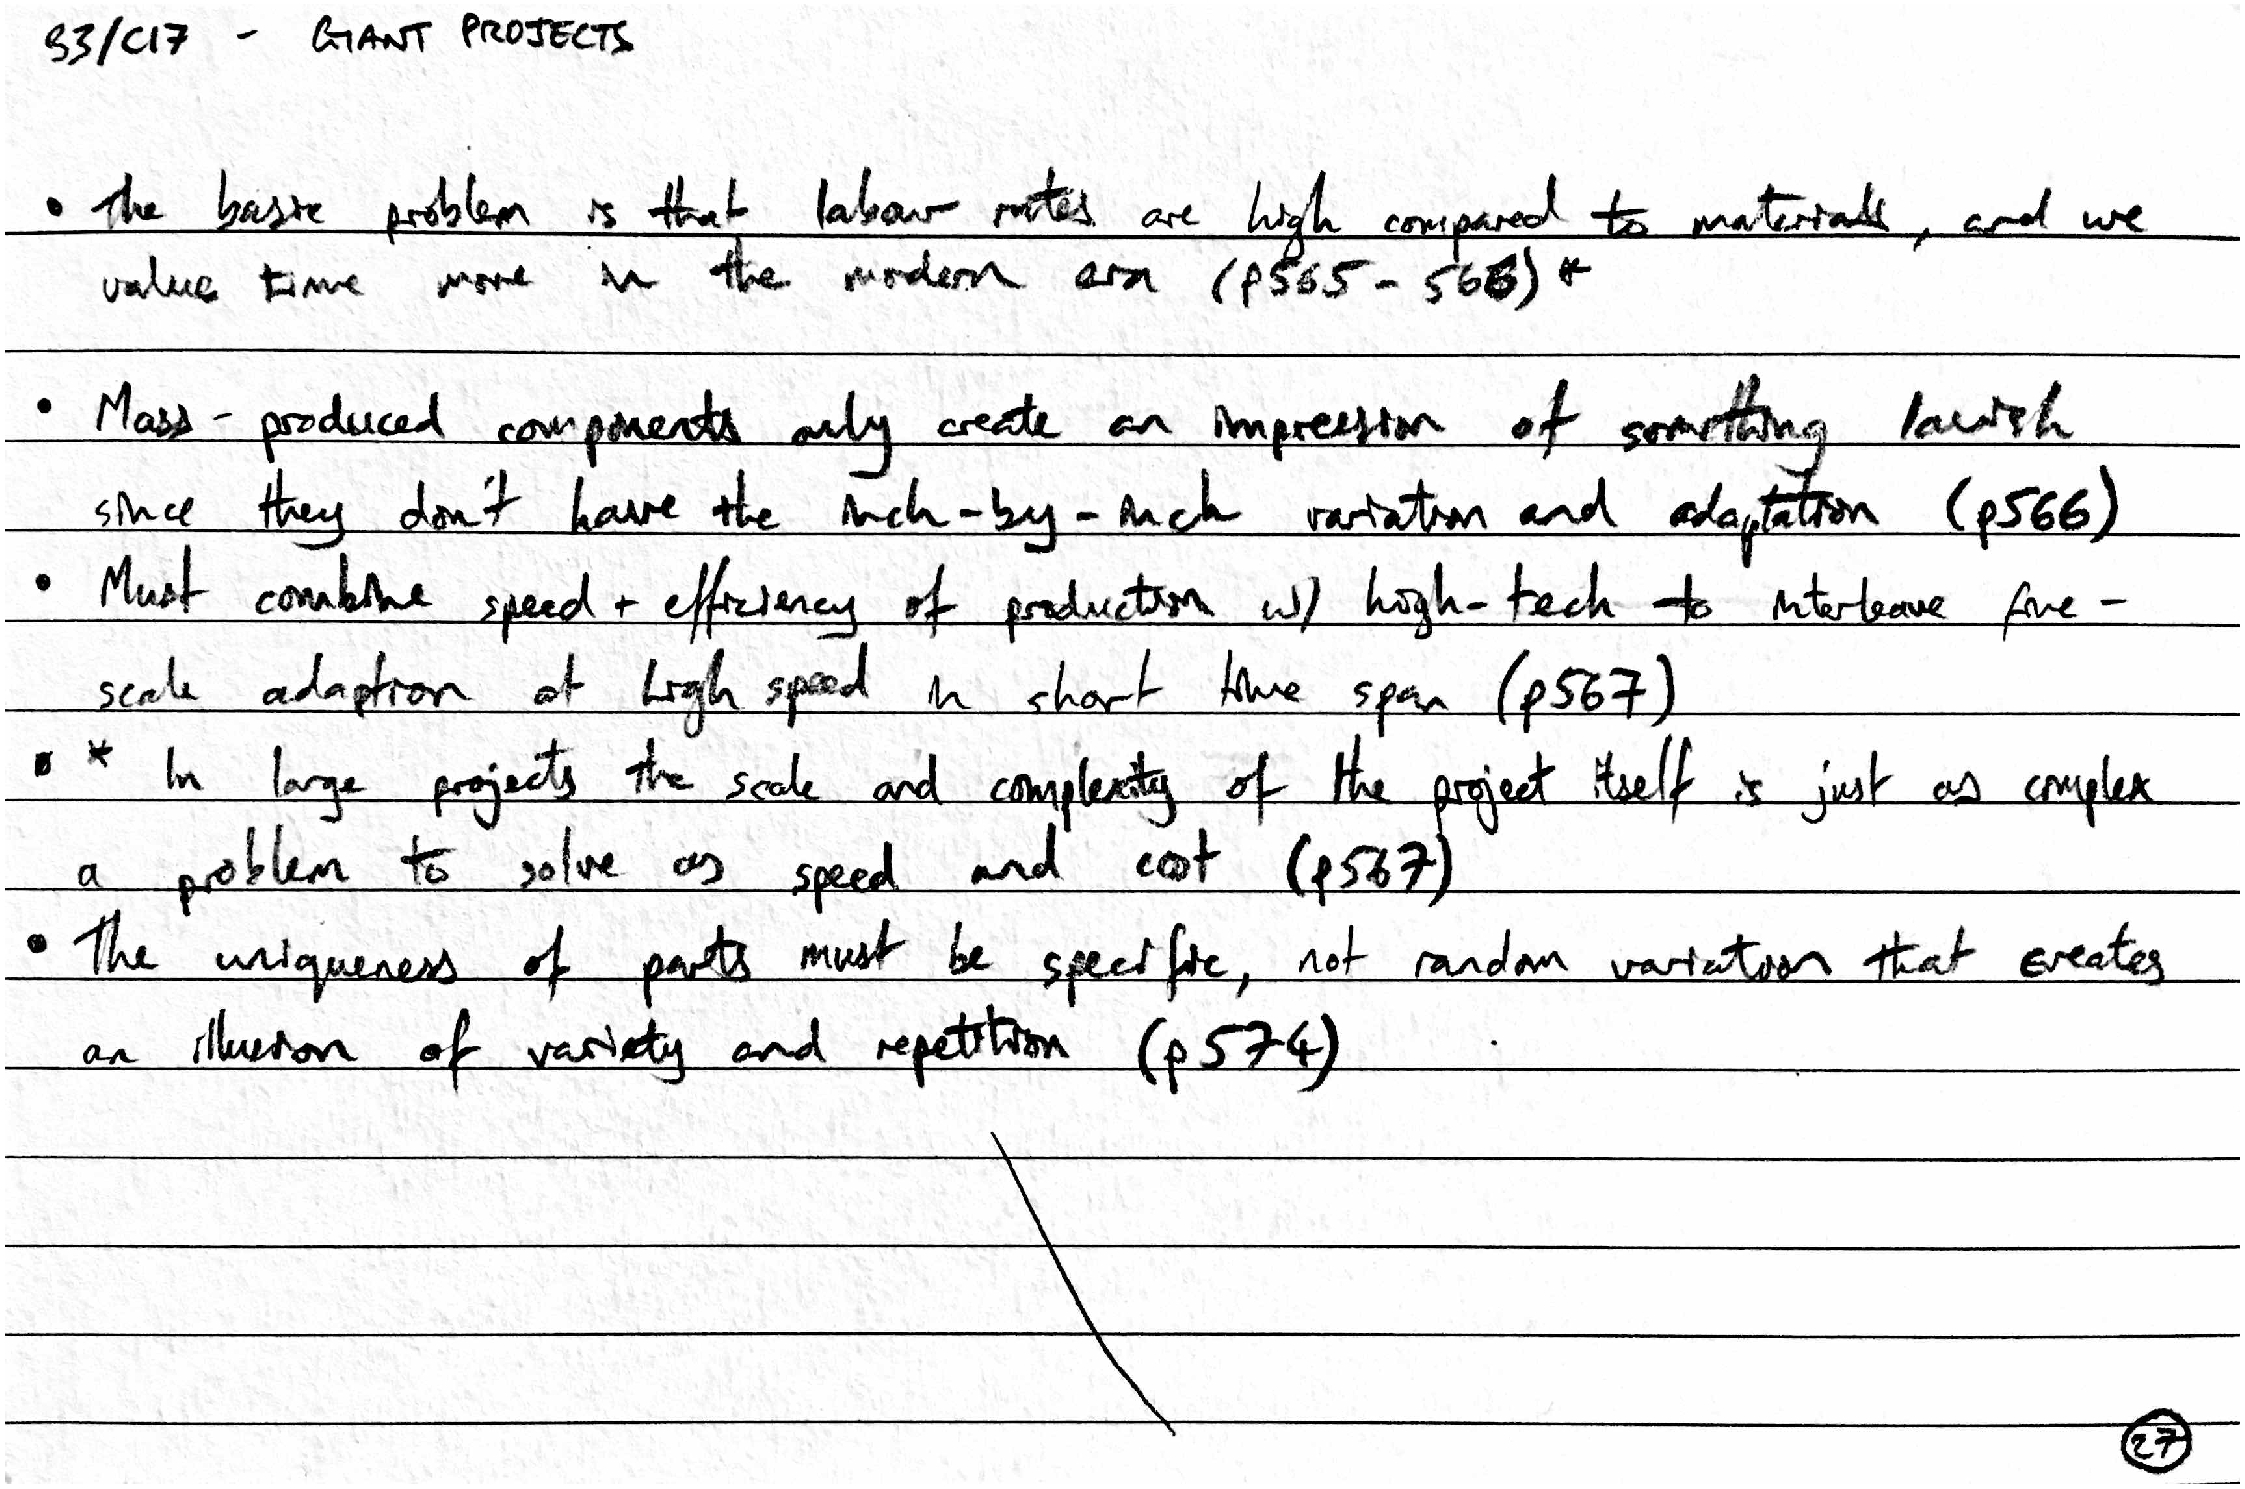 S3/C17 - GIANT PROJECTS
• The basic problem is that labour rates are high compared to materials, and we
value time more in the modern era (p565 - 566) *
• Mass - produced components only create an impression of something lavish
since they don't have the inch-by-inch variation and adaptation (p566)
• Must combine speed + efficiency of production w/ high-tech to interleave fine-
scale adaption at high speed in short time span (p567)
• * In large projects the scale and complexity of the project itself is just as complex
a problem to solve as speed and cost (p567)
• The uniqueness of parts must be specific, not random variation that creates
an illusion of variety and repetition (p574)
27